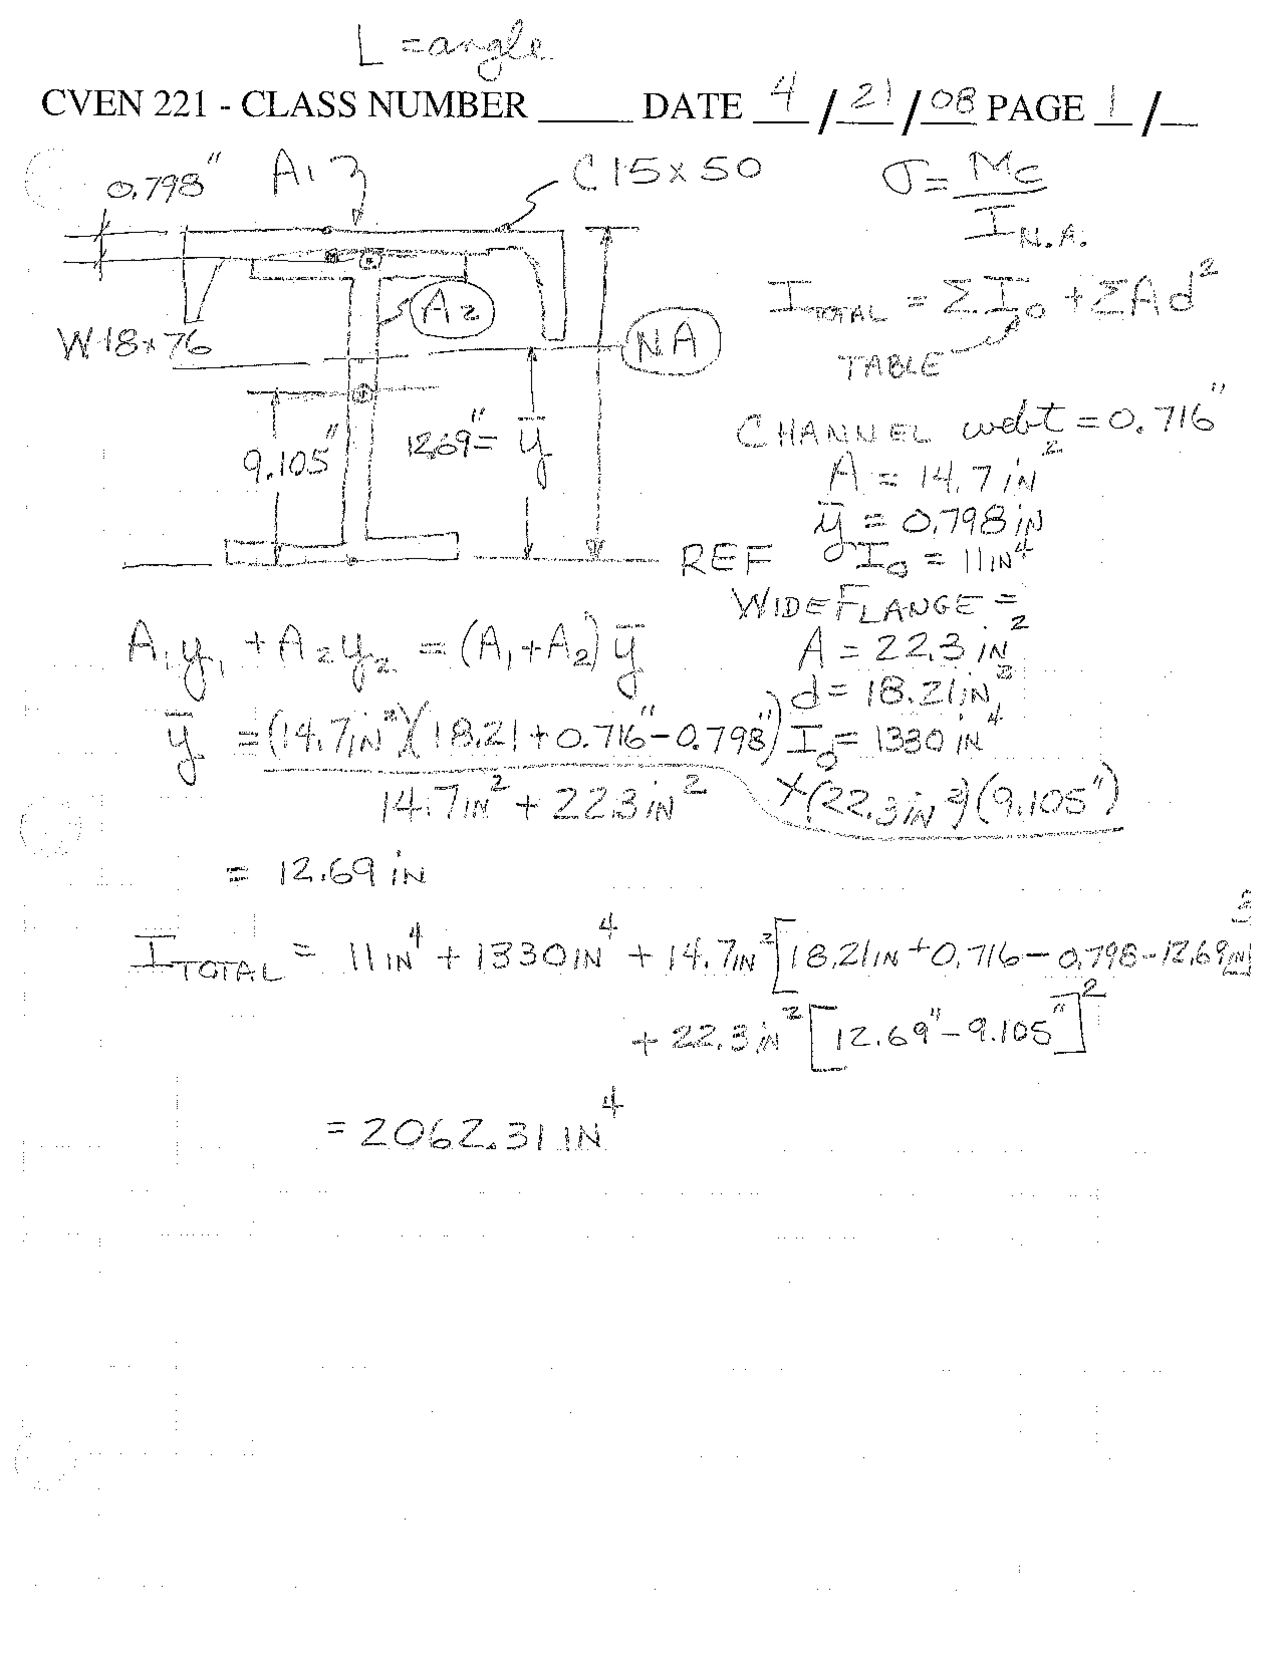 L = angle
CVEN 221 - CLASS NUMBER _____ DATE 4 / 21 / 08 PAGE 1 / __
0.798" A1 C 15 x 50 σ = Mc / I N.A.
A2
W 18 x 76
NA
I TOTAL = ΣI₀ + ΣAd²
TABLE
9.105" 12.69" = ȳ
REF
CHANNEL web t = 0.716"
A = 14.7 in²
ȳ = 0.798 in
I₀ = 11 in⁴
WIDE FLANGE =
A = 22.3 in²
d = 18.21 in
I₀ = 1330 in⁴
A₁y₁ + A₂y₂ = (A₁+A₂)ȳ
ȳ = (14.7in²)(18.21 + 0.716" - 0.798") + (22.3in²)(9.105")
14.7in² + 22.3in²
= 12.69 in
I TOTAL = 11 in⁴ + 1330 in⁴ + 14.7in² [18.21in + 0.716 - 0.798 - 12.69in]²
+ 22.3in² [12.69" - 9.105"]²
= 2062.31 in⁴